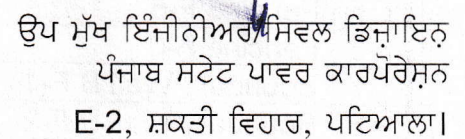 ਉਪ ਮੁੱਖ ਇੰਜੀਨੀਅਰ/ਸਿਵਲ ਡਿਜ਼ਾਇਨ
ਪੰਜਾਬ ਸਟੇਟ ਪਾਵਰ ਕਾਰਪੋਰੇਸ਼ਨ
E-2, ਸ਼ਕਤੀ ਵਿਹਾਰ, ਪਟਿਆਲਾ।